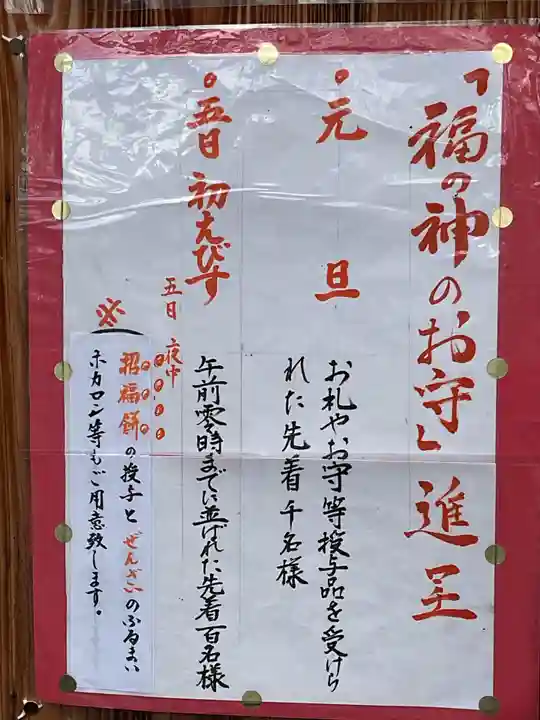 「福の神のお守」進呈
・元旦
お札やお守等授与品を受けら
れた先着千名様
・五日 初えびす
午前零時までに並ばれた先着百名様
五日 夜中
※
招福餅の授与とぜんざいのふるまい
ホカロン等もご用意致します。